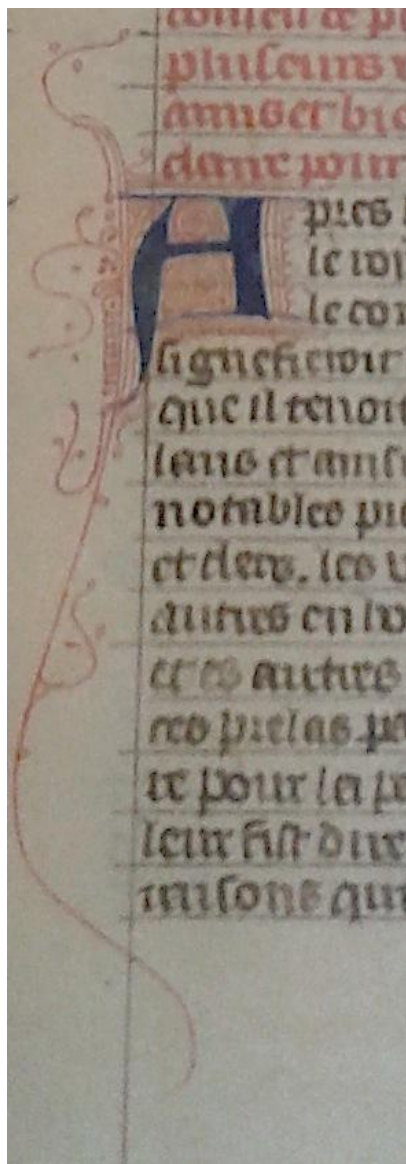 conseil de pl
pluseurs
amis et bie
dant pour
Apres l
le roy
le con
signefieroit
que il tenoit
lans et ainsi
notables pre
et clers, les
autres en lo
et es autres
ces prelas pe
te pour la
leur fist dire
raisons qui